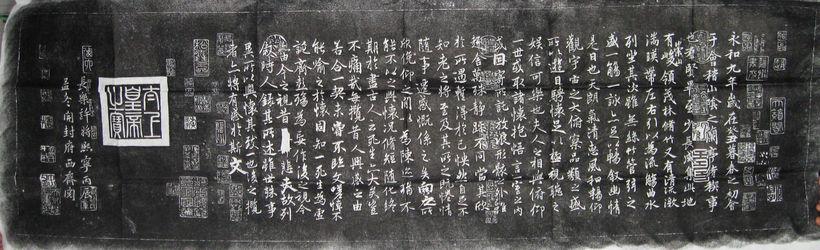 永和九年歲在癸丑暮春之初會
于會稽山陰之蘭亭脩稧事
也群賢畢至少長咸集此地
有崇山峻領茂林脩竹又有清流激
湍暎帶左右引以為流觴曲水
列坐其次雖無絲竹管弦之
盛一觴一詠亦足以暢敘幽情
是日也天朗氣清惠風和暢仰
觀宇宙之大俯察品類之盛
所以遊目騁懷足以極視聽之
娛信可樂也夫人之相與俯仰
一世或取諸懷抱悟言一室之內
或因寄所託放浪形骸之外雖
趣舍萬殊靜躁不同當其欣
於所遇蹔得於己怏然自足不
知老之將至及其所之既惓情
隨事遷感慨係之矣向之所
欣俛仰之閒以為陳迹猶不
能不以之興懷況脩短隨化終
期於盡古人云死生亦大矣豈
不痛哉每攬昔人興感之由
若合一契未嘗不臨文嗟悼不
能喻之於懷固知一死生為虛
誕齊彭殤為妄作後之視今
亦由今之視昔悲夫故列
敘時人錄其所述雖世殊事
異所以興懷其致一也後之攬
者亦將有感於斯文
太上皇帝之寶
長樂許將熙寧丙辰
孟冬開封府西齋閱